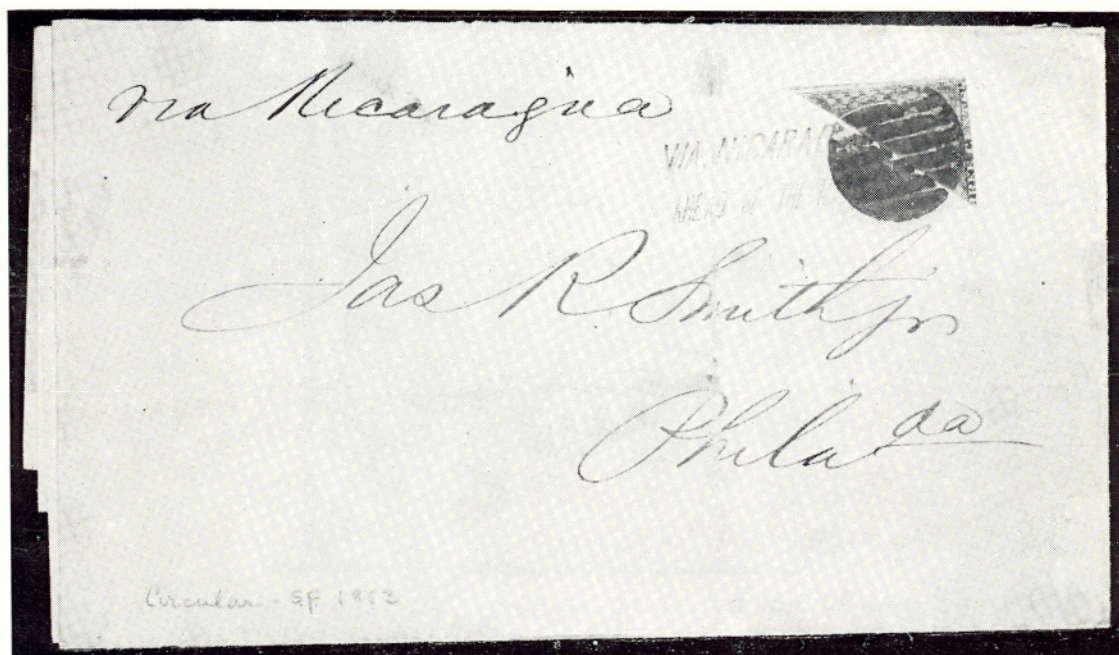 via Nicaragua
VIA. NICARAG
AHEAD OF THE
Jas R Smith Jr
Philada
Circular - SF 1853